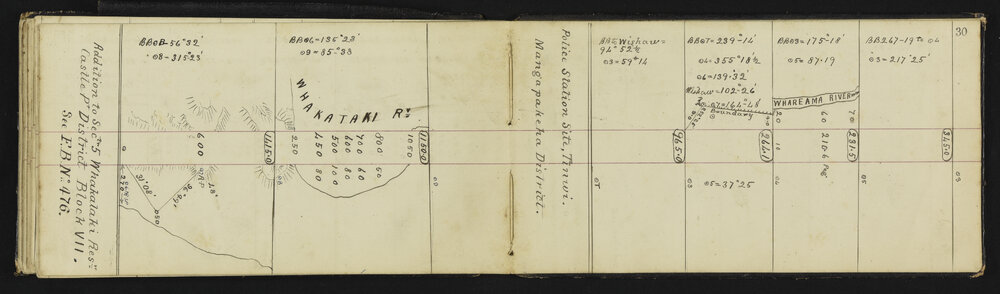 30
Addition to Secⁿ 5 Whakataki Resⁿ
Castle Pᵗ District Block VII.
See F.B Nº 476.
BB0B-56°32'
08-315°23'
600
1145·0
0
AP
050
BB06-136°23'
09-85°33
WHAKATAKI Rᴿ
250
450 80
500 100
600 80
700 60
800 60
1050
1150·0
08
00
Police Station Site, Tinwi.
Mangapakeha District.
BB Wishaw=
94°52½
03=59°14
07
965·0
BB07=239-14'
04=355°18½
06=139·32'
Wishaw=102-26'
07=144-48'
Boundary
264·1
03
05=37°25
BB03=175°18'
05=87·19
WHAREAMA RIVER
20
10
40
70
210·6 Peg
231·5
04
BB247-19 to 04
03=217°25'
345·0
05
03